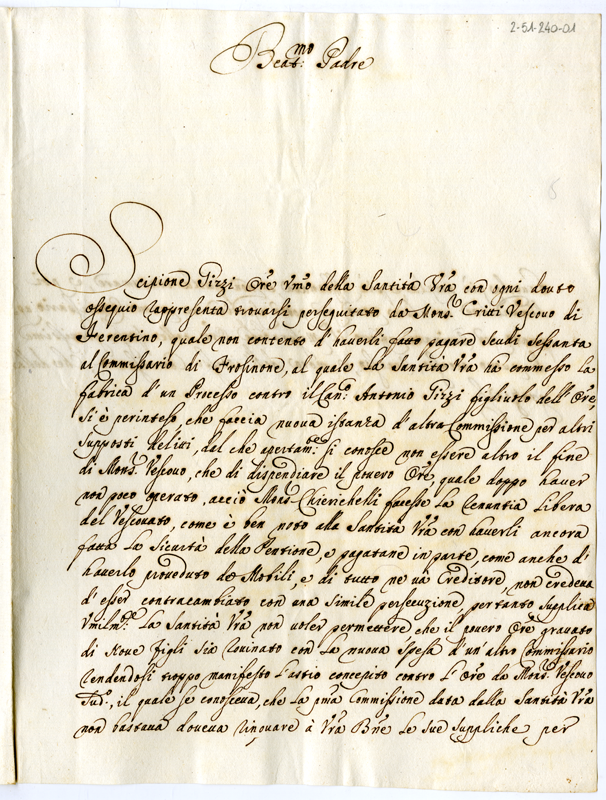 2-51-240-01
Beat.mo Padre
Scipione Tirzi Ore vmo della Santità Vra con ogni douto
ossequio rappresenta trouarsi perseguitato da Mons.r Vescouo di
Ferentino, quale non contento d'hauerli fatto pagare scudi sessanta
al Commissario di Frosinone, al quale la Santità Vra hà commesso la
fabrica d'un Processo contro il Can.co Antonio Tirzi figliuolo dell'Ore,
si è perinteso, che faccia nuoua istanza d'altra Commissione per altri
supposti delitti, dal che apertam.te si conosce non essere altro il fine
di Mons.r Vescouo, che di dispendiare il pouero Ore, quale doppo hauer
non poco operato, acciò Mons.r Chierichelli facesse la renuntia libera
del Vescouato, come è ben noto alla Santità Vra con hauerli ancora
fatta la sicurtà della Pentione, e pagatane in parte, come anche d'
hauerlo proueduto de Mobili, e di tutto ne và Creditore, non credeua
d'esser contracambiato con una simile persecuzione, pertanto supplica
vmilm.te la Santità Vra non voler permettere che il pouero Ore grauato
di noue figli sia rouinato con la nuoua spesa d'un altro Commissario
rendendosi troppo manifesto l'astio concepito contro l'Ore da Mons.r Vescouo
sud.o, il quale se conosceua, che la pma Commissione data dalla Santità Vra
non bastaua doueua rinouare à Vra Bne le sue suppliche per